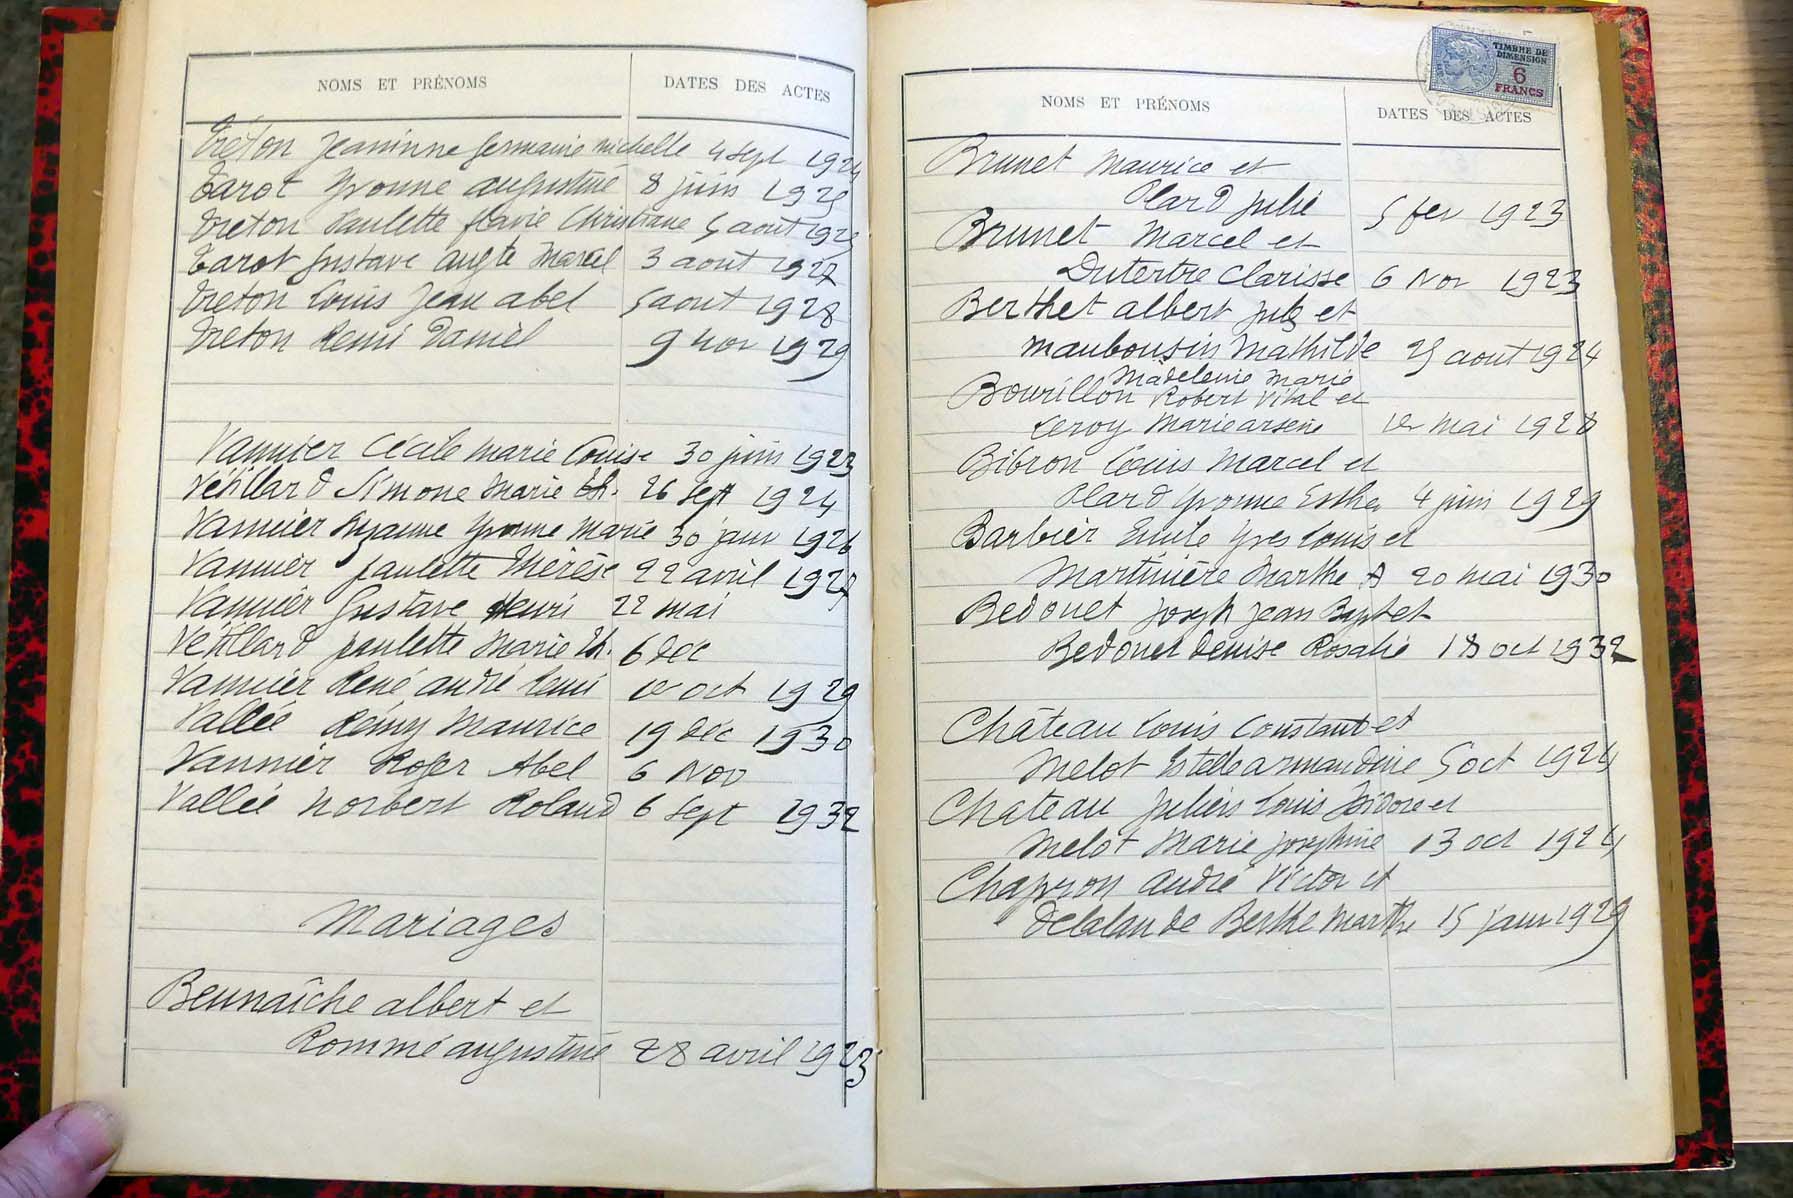 NOMS ET PRÉNOMS DATES DES ACTES
Tréton Jeaninne Germaine Michelle 4 Sept 1924
Tarot Yvonne Augustine 8 juin 1925
Treton Paulette flavie Christiane 5 aout
Tarot Gustave Augte Marcel 3 aout 1927
Treton Louis Jean abel 5 aout 1928
Treton Remi Daniel 9 nov 1929
Vannier Cécile Marie Louise 30 juin 1923
Vétillard Simone Marie th. 26 Sept 1924
Vannier Suzanne Yvonne Marie 30 janv 1926
Vannier paulette Thérèse 22 avril 1927
Vannier Gustave Henri 22 mai
Vétillard paulette Marie th. 6 déc
Vannier René andré 1er oct 1929
Vallée Rémy Maurice 19 déc 1930
Vannier Roger Abel 6 Nov
Vallée Norbert Roland 6 Sept 1932
Mariages
Beunaîche albert et
Rommé augustine 28 avril 1923
TIMBRE DE
DIMENSION
6
FRANCS
NOMS ET PRÉNOMS DATES DES ACTES
Brunet Maurice et
Plard Julie 5 fev 1923
Brunet Marcel et
Dutertre Clarisse 6 Nov 1923
Berthet albert Jules et
Maubousin Mathilde 25 aout 1924
Madeleine Marie
Bourillon Robert Vital et
Leroy Marie arsène 1er mai 1928
Bibron Louis Marcel et
Plard Yvonne Esther 4 juin 1929
Barbier Emile Yves Louis et
Martinière Marthe A 20 mai 1930
Bedouet Joseph Jean Bapt et
Bedouet Denise Rosalie 18 oct 1932
Château Louis Constant et
Melot Estelle armandine 5 oct 1924
Chateau Julien Louis Isidore et
Melot Marie Joséphine 13 oct 1924
Chapron André Victor et
Delalande Berthe Marthe 15 janv 1929